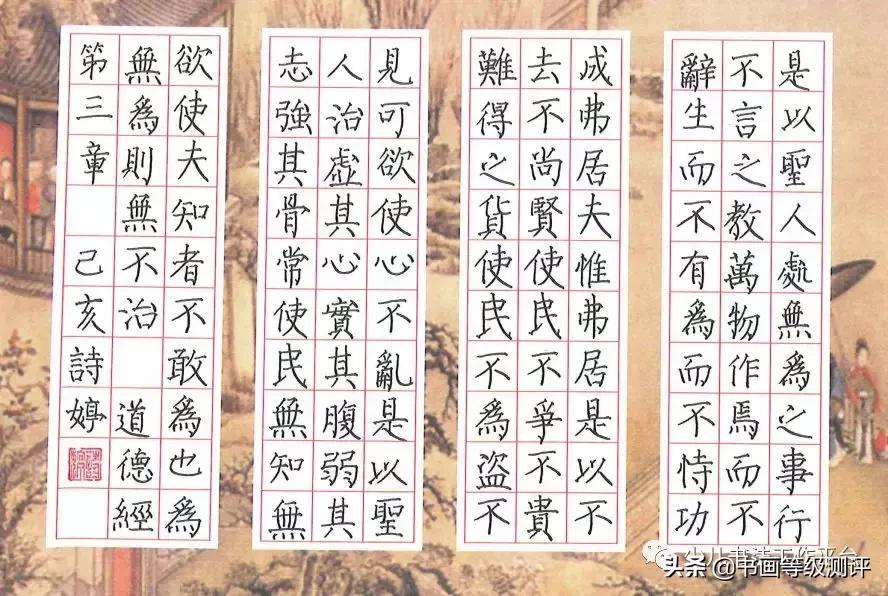 是以聖人處無為之事行
不言之教萬物作焉而不
辭生而不有為而不恃功
成弗居夫惟弗居是以不
去不尚賢使民不爭不貴
難得之貨使民不為盜不
見可欲使心不亂是以聖
人治虛其心實其腹弱其
志強其骨常使民無知無
欲使夫知者不敢為也為
無為則無不治 道德經
第三章 己亥詩婷
少儿书法工作平台
头条@书画等级测评